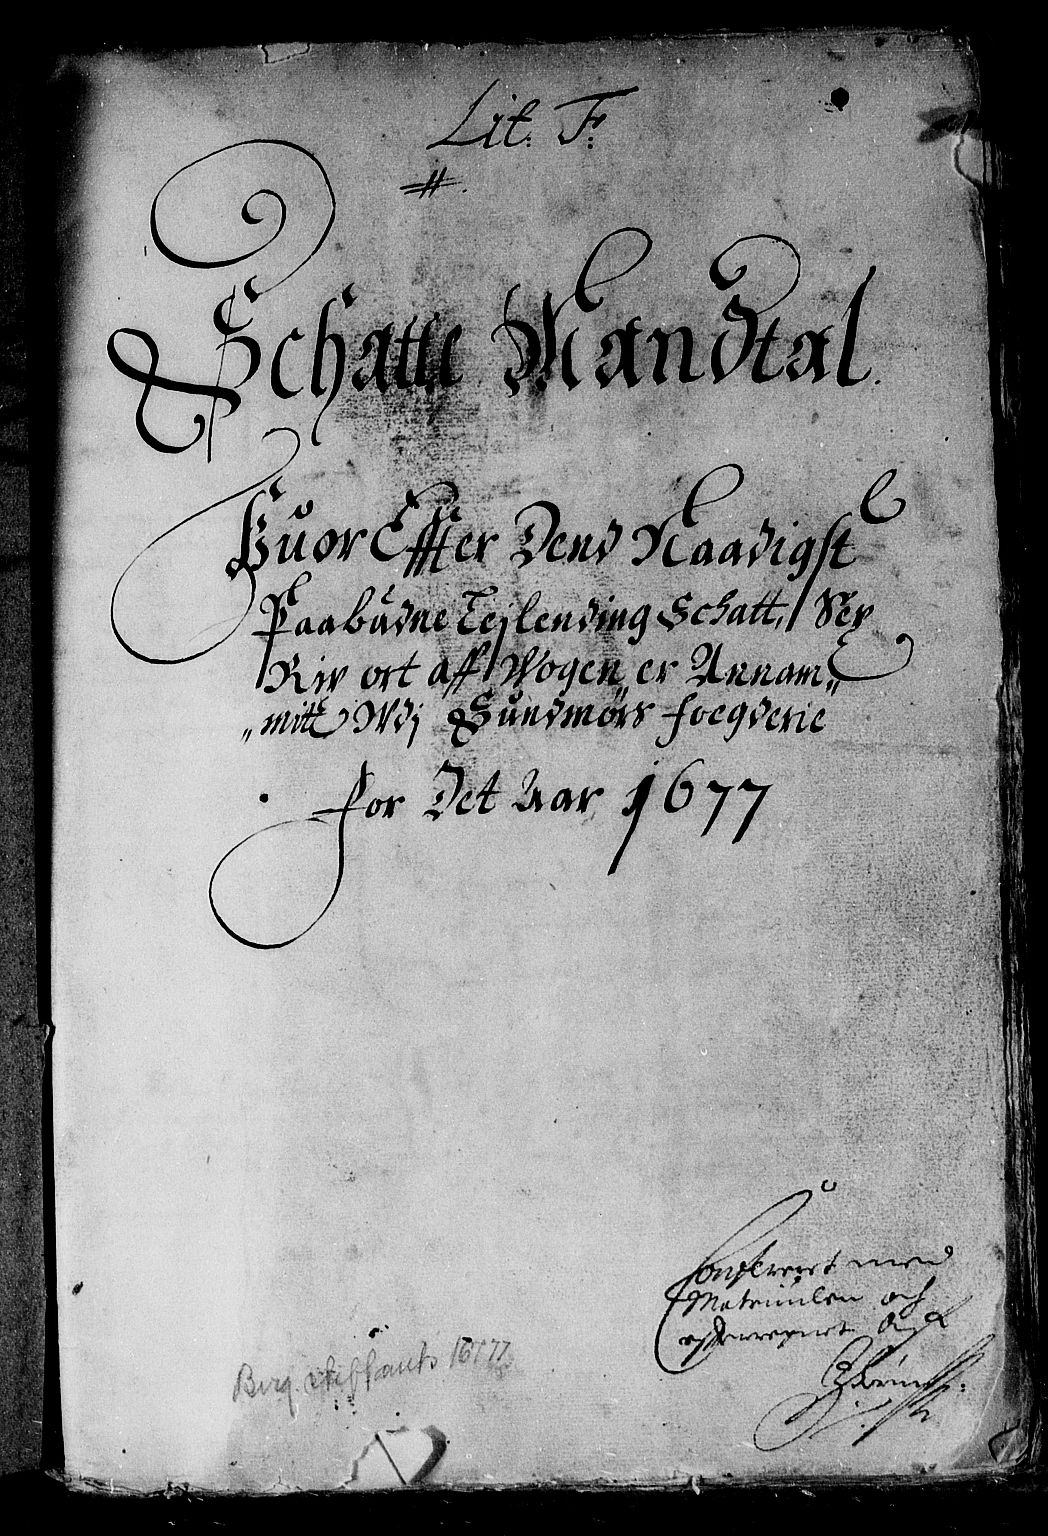 Lit: F:
#.
Schatte Mandtal.
Huor Effter Dend Naadigst
Paabudne Leilending Schatt, Sex
Rix ort aff Wogen er Annam„
„mitt Wdj Sundmørs foegderie
for Det Aar 1677
Confererit med
Matriculen och
Berg. Stiftamt 1677